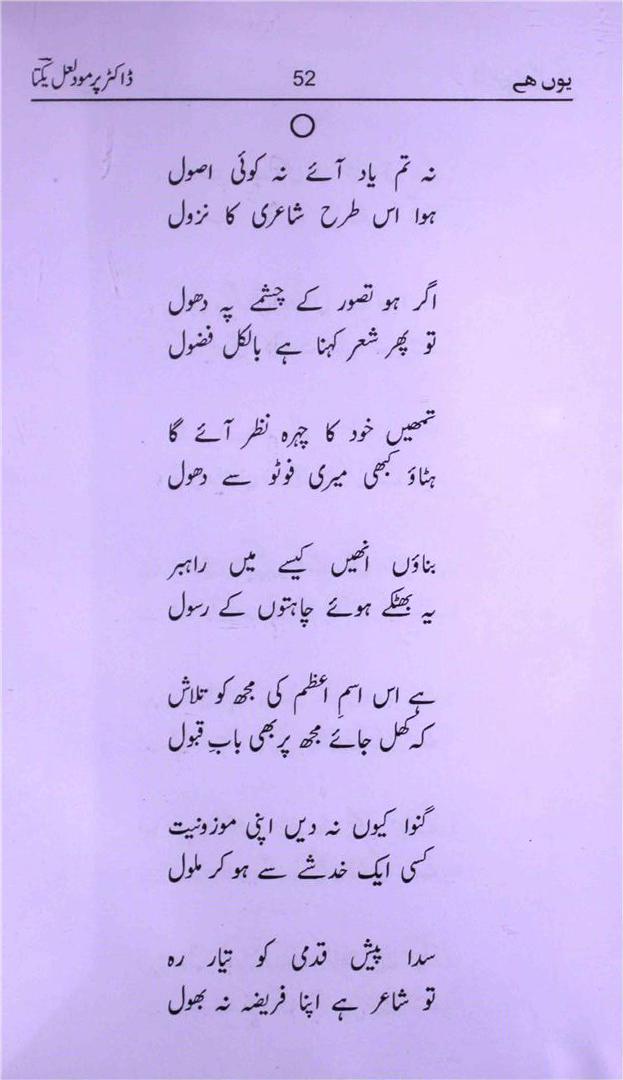 یوں ھے 52 ڈاکٹر پرمود لعل یکتا
نہ تم یاد آئے نہ کوئی اصول
ہوا اس طرح شاعری کا نزول
اگر ہو تصور کے چشمے پہ دھول
تو پھر شعر کہنا ہے بالکل فضول
تمھیں خود کا چہرہ نظر آئے گا
ہٹاؤ کبھی میری فوٹو سے دھول
بناؤں انھیں کیسے میں راہبر
یہ بھٹکے ہوئے چاہتوں کے رسول
ہے اس اسمِ اعظم کی مجھ کو تلاش
کہ کھل جائے مجھ پر بھی بابِ قبول
گنوا کیوں نہ دیں اپنی موزونیت
کسی ایک خدشے سے ہو کر ملول
سدا پیش قدمی کو تیار رہ
تو شاعر ہے اپنا فریضہ نہ بھول